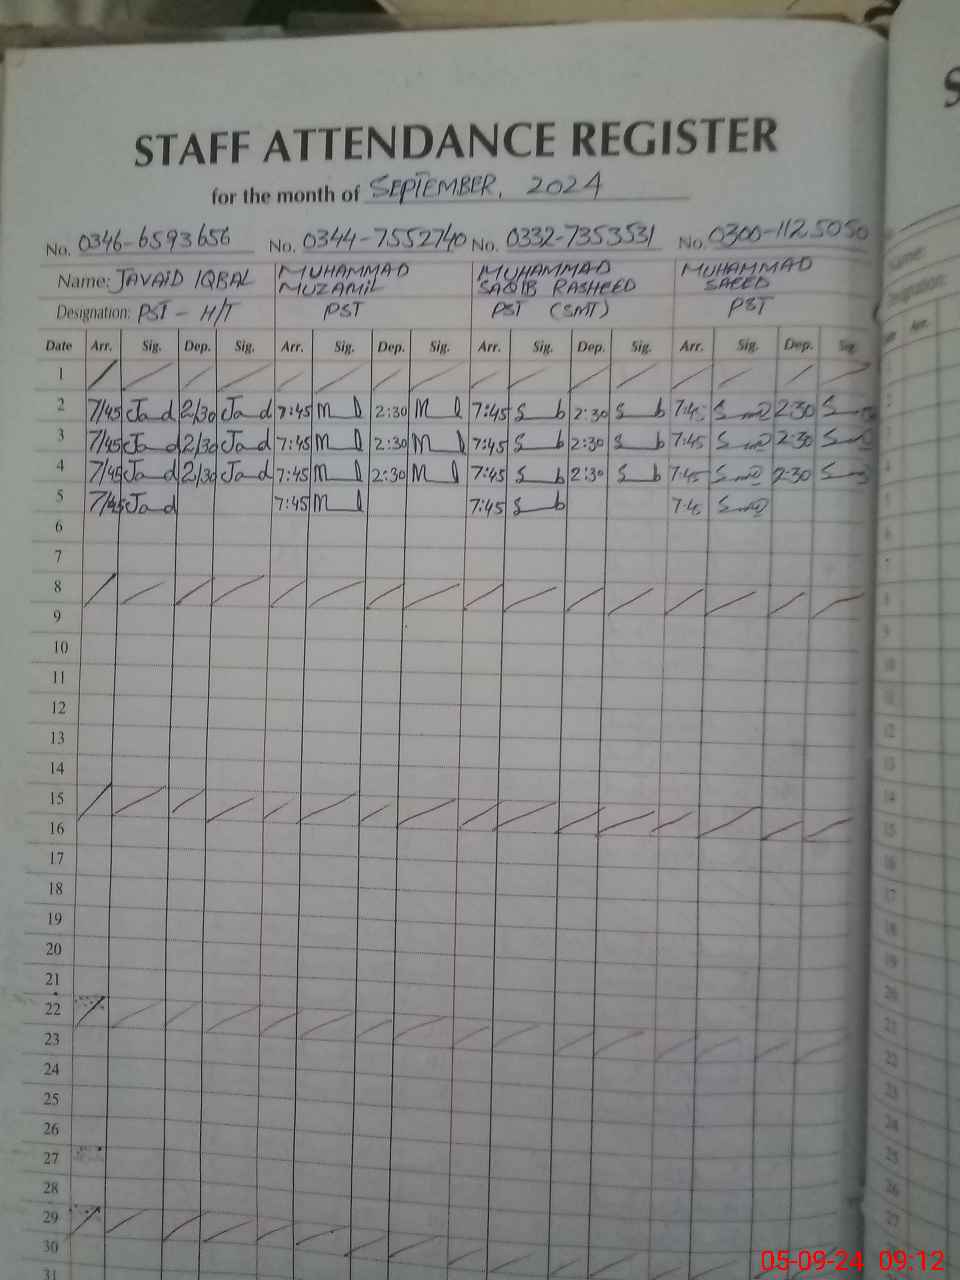 STAFF ATTENDANCE REGISTER
for the month of SEPTEMBER, 2024
No. 0346-6593656 No. 0344-7552740 No. 0332-7353531 No. 0300-1125050
Name: JAVAID IQBAL MUHAMMAD MUZAMIL MUHAMMAD SAQIB RASHEED MUHAMMAD SAEED
Designation: PST - H/T PST PST (SMT) PST
Date Arr. Sig. Dep. Sig. Arr. Sig. Dep. Sig. Arr. Sig. Dep. Sig. Arr. Sig. Dep. Sig.
1
2 7/45 2/30 7:45 2:30 7:45 2:30 7:45 2:30
3 7/45 2/30 7:45 2:30 7:45 2:30 7:45 2:30
4 7/45 2/30 7:45 2:30 7:45 2:30 7:45 2:30
5 7/45 7:45 7:45 7:45
6
7
8
9
10
11
12
13
14
15
16
17
18
19
20
21
22
23
24
25
26
27
28
29
30
31
05-09-24 09:12